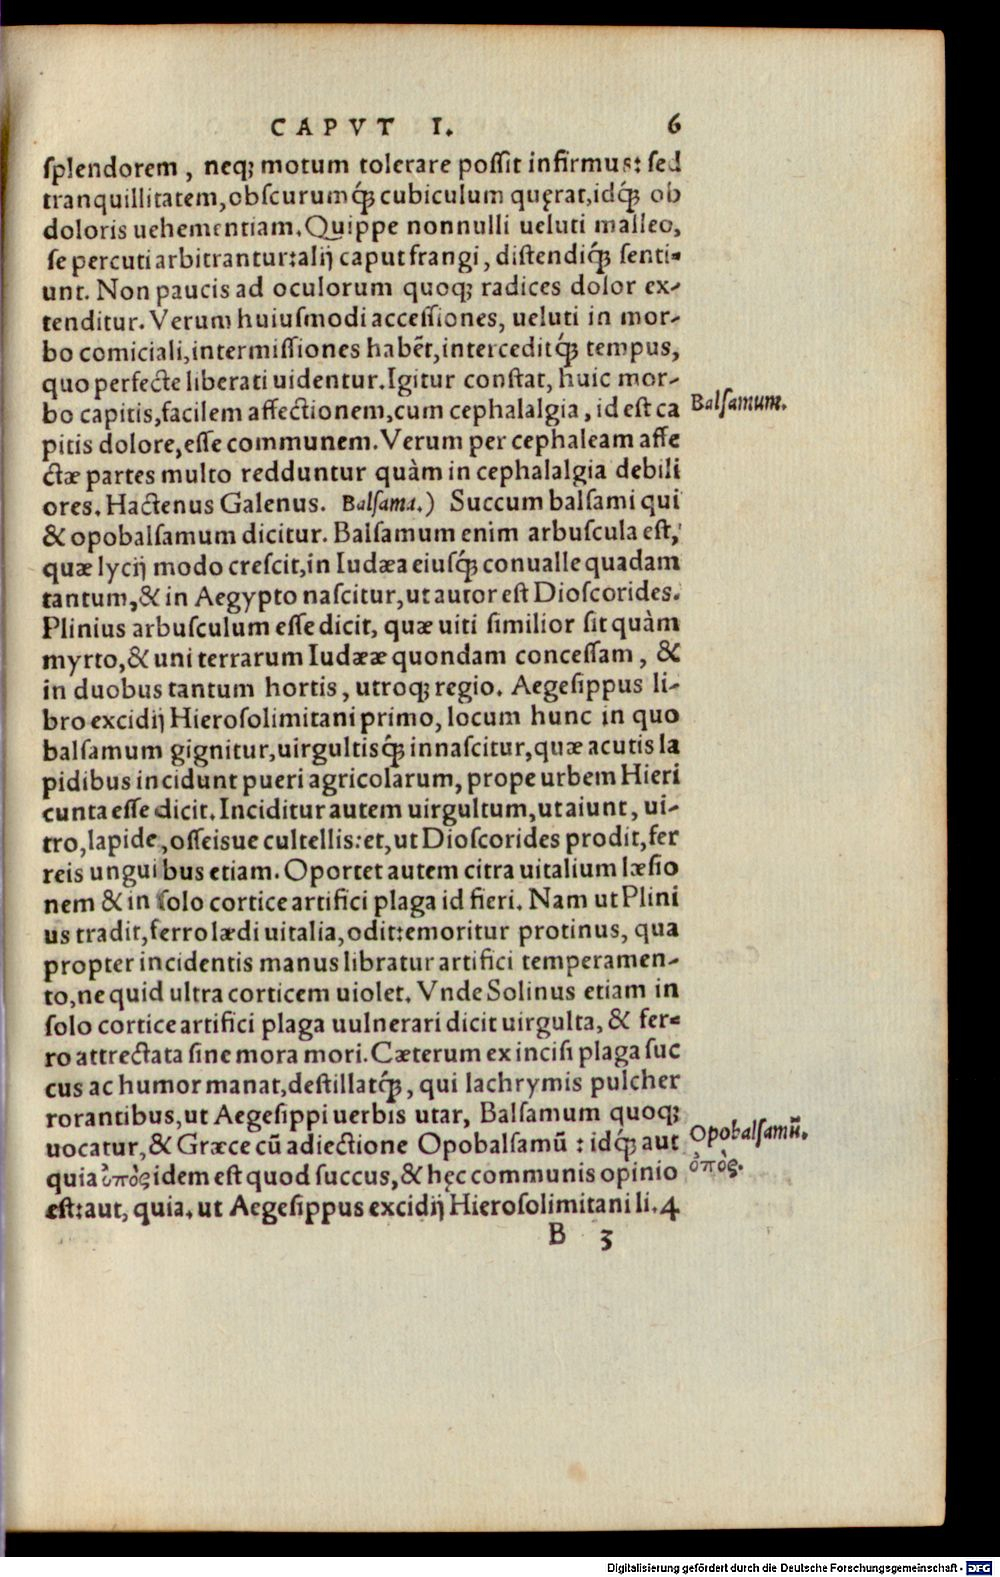 CAPVT I. 6
ſplendorem, neq; motum tolerare poſſit infirmus: ſed
tranquillitatem, obſcurumq́; cubiculum quęrat, idq́; ob
doloris uehementiam. Quippe nonnulli ueluti malleo,
ſe percuti arbitrantur: alij caput frangi, diſtendiq́; ſenti-
unt. Non paucis ad oculorum quoq; radices dolor ex-
tenditur. Verum huiuſmodi acceſſiones, ueluti in mor-
bo comiciali, intermiſſiones habēt, interceditq́; tempus,
quo perfecte liberati uidentur. Igitur conſtat, huic mor-
bo capitis, facilem affectionem, cum cephalalgia, id eſt ca
Balſamum.
pitis dolore, eſſe communem. Verum per cephaleam affe
ctæ partes multo redduntur quàm in cephalalgia debili
ores. Hactenus Galenus. Balſama.) Succum balſami qui
& opobalſamum dicitur. Balſamum enim arbuſcula eſt,
quæ lycij modo creſcit, in Iudæa eiuſq́; conualle quadam
tantum, & in Aegypto naſcitur, ut autor eſt Dioſcorides.
Plinius arbuſculum eſſe dicit, quæ uiti ſimilior ſit quàm
myrto, & uni terrarum Iudææ quondam conceſſam, &
in duobus tantum hortis, utroq; regio. Aegeſippus li-
bro excidij Hieroſolimitani primo, locum hunc in quo
balſamum gignitur, uirgultisq́; innaſcitur, quæ acutis la
pidibus incidunt pueri agricolarum, prope urbem Hieri
cunta eſſe dicit. Inciditur autem uirgultum, ut aiunt, ui-
tro, lapide, oſſeisue cultellis: et, ut Dioſcorides prodit, fer
reis unguibus etiam. Oportet autem citra uitalium læſio
nem & in ſolo cortice artifici plaga id fieri. Nam ut Plini
us tradit, ferro lædi uitalia, odit: emoritur protinus, qua
propter incidentis manus libratur artifici temperamen-
to, ne quid ultra corticem uiolet. Vnde Solinus etiam in
ſolo cortice artifici plaga uulnerari dicit uirgulta, & fer-
ro attrectata ſine mora mori. Cæterum ex inciſi plaga ſuc
cus ac humor manat, deſtillatq́;, qui lachrymis pulcher
rorantibus, ut Aegeſippi uerbis utar, Balſamum quoq;
uocatur, & Græce cū adiectione Opobalſamū: idq́; aut
Opobalſamū.
quia ὀπὸς idem eſt quod ſuccus, & hęc communis opinio
ὀπὸς.
eſt: aut, quia, ut Aegeſippus excidij Hieroſolimitani li. 4
B 3
Digitalisierung gefördert durch die Deutsche Forschungsgemeinschaft - DFG